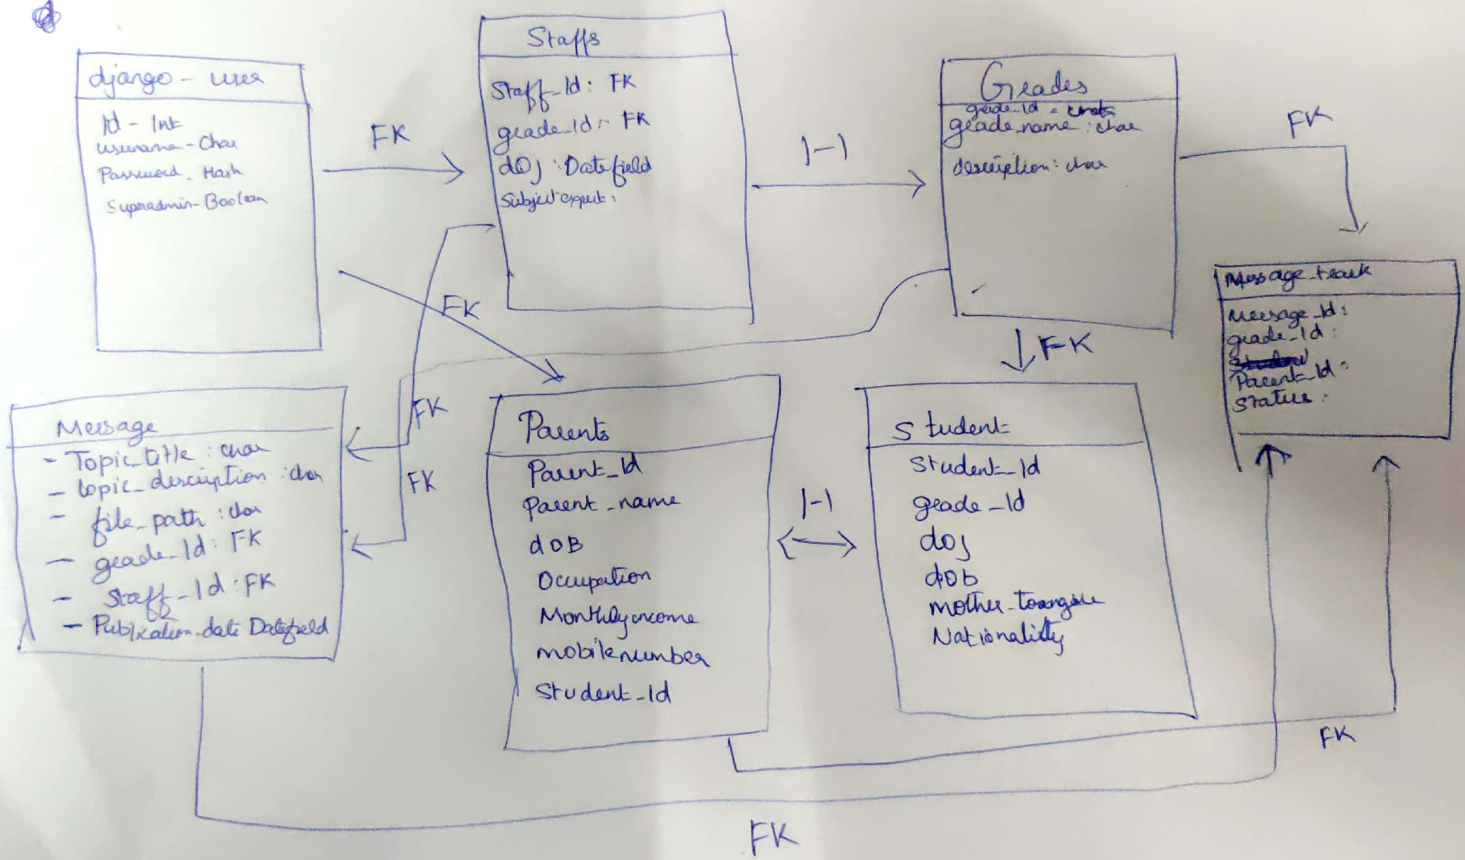 django - user
Id - Int
username - Char
Password - Hash
Superadmin - Boolean
FK
Staffs
Staff_Id : FK
grade_Id - FK
dOj : Datefield
Subject expert :
1-1
Grades
grade_id -
grade_name : char
description : char
FK
Message_track
Message_Id :
grade_Id :
Parent_Id :
Status :
FK
FK
FK
FK
Message
- Topic_title : char
- topic_description : char
- file_path : char
- grade_Id : FK
- Staff_Id : FK
- Publication_date Datefield
Parents
Parent_Id
Parent_name
dOB
Occupation
Monthlyincome
mobilenumber
Student_id
1-1
Student
Student_Id
grade_Id
doj
dob
Nationality
FK
FK